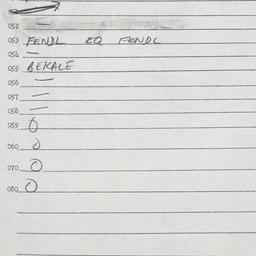 052 —
053 FENDL EQ FENDL
054 —
055 BEKALE
056 —
057 —
058 —
059 0
060 0
070 0
080 0